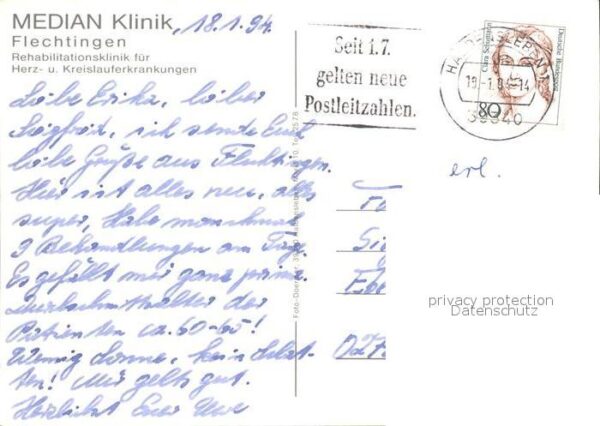 MEDIAN Klinik, 18.1.94.
Flechtingen
Rehabilitationsklinik für
Herz- u. Kreislauferkrankungen
Liebe Erika, lieber
Siegfried, ich sende Euch
liebe Grüße aus Flechtingen.
Hier ist alles neu, alles
super, Habe manchmal
9 Behandlungen am Tag.
Es gefällt mir ganz prima.
Durchschnittsalter der
Patienten ca. 60-65!
Wenig Sonne, kein Schat-
ten! Mir gehts gut.
Herzlichst Euer Uwe
Seit 1.7.
gelten neue
Postleitzahlen.
19.-1.9 -14
39340
Clara Schumann
Deutsche Bundespost
80
erl.
Fa
Si
Ebe
privacy protection
Datenschutz